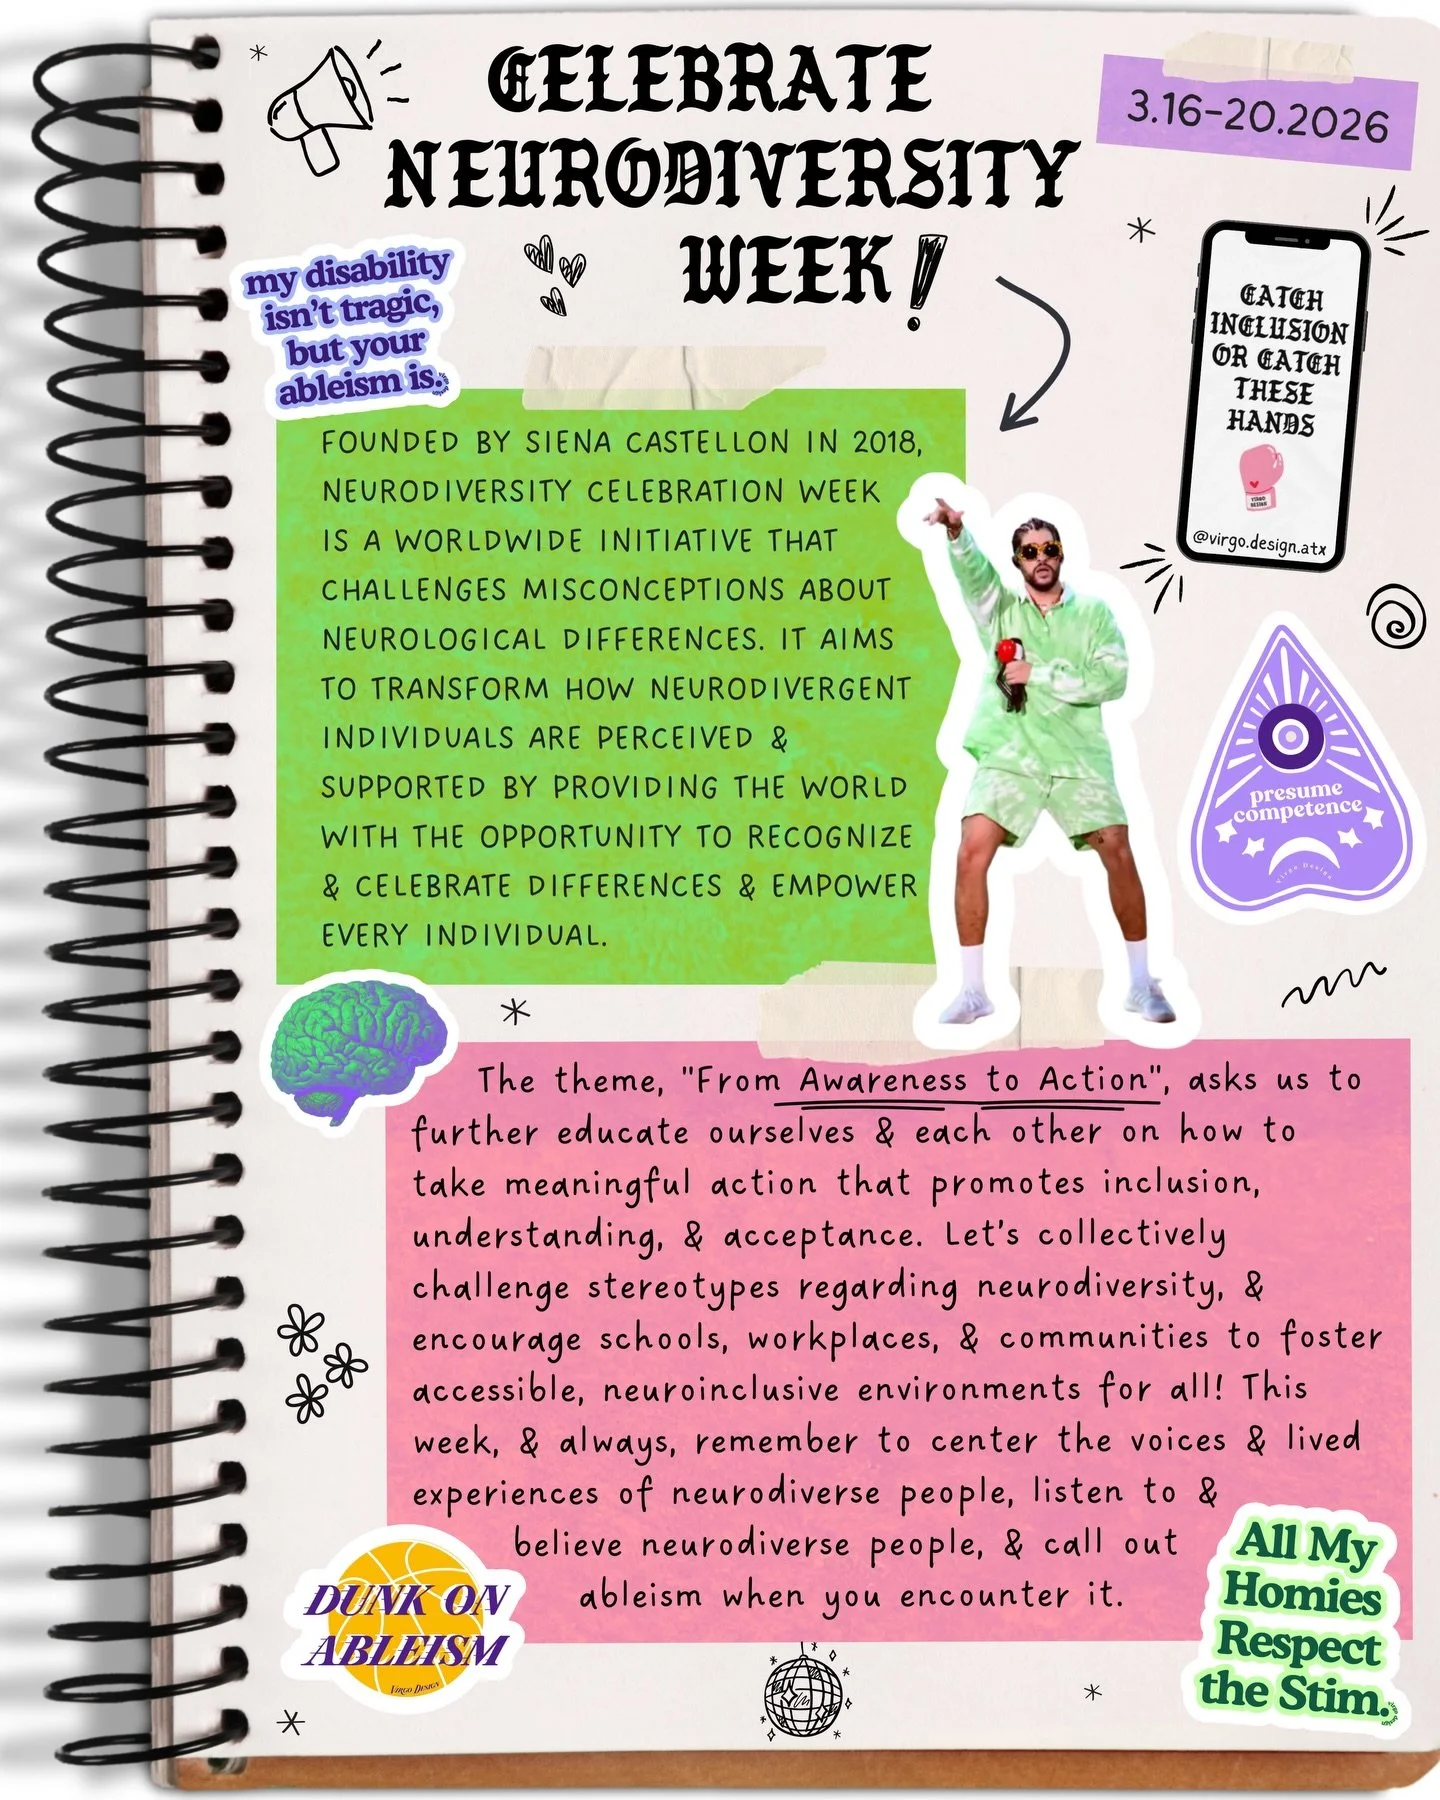 CELEBRATE
NEURODIVERSITY
WEEK!
3.16-20.2026
my disability
isn't tragic,
but your
ableism is.
virgo design
CATCH
INCLUSION
OR CATCH
THESE
HANDS
VIRGO
DESIGN
@virgo.design.atx
FOUNDED BY SIENA CASTELLON IN 2018,
NEURODIVERSITY CELEBRATION WEEK
IS A WORLDWIDE INITIATIVE THAT
CHALLENGES MISCONCEPTIONS ABOUT
NEUROLOGICAL DIFFERENCES. IT AIMS
TO TRANSFORM HOW NEURODIVERGENT
INDIVIDUALS ARE PERCEIVED &
SUPPORTED BY PROVIDING THE WORLD
WITH THE OPPORTUNITY TO RECOGNIZE
& CELEBRATE DIFFERENCES & EMPOWER
EVERY INDIVIDUAL.
presume
competence
Virgo Design
The theme, "From Awareness to Action", asks us to
further educate ourselves & each other on how to
take meaningful action that promotes inclusion,
understanding, & acceptance. Let's collectively
challenge stereotypes regarding neurodiversity, &
encourage schools, workplaces, & communities to foster
accessible, neuroinclusive environments for all! This
week, & always, remember to center the voices & lived
experiences of neurodiverse people, listen to &
believe neurodiverse people, & call out
ableism when you encounter it.
DUNK ON
ABLEISM
VIRGO DESIGN
All My
Homies
Respect
the Stim.
virgo design